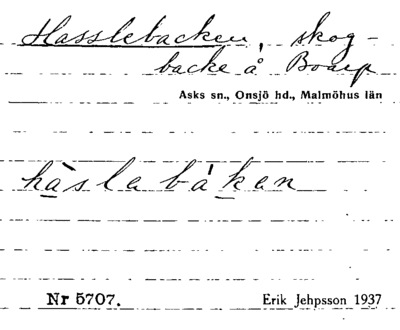 Hasslebacken, skog-
backe å Boarp
Asks sn., Onsjö hd., Malmöhus län
hàslabákan
Nr 5707. Erik Jehpsson 1937